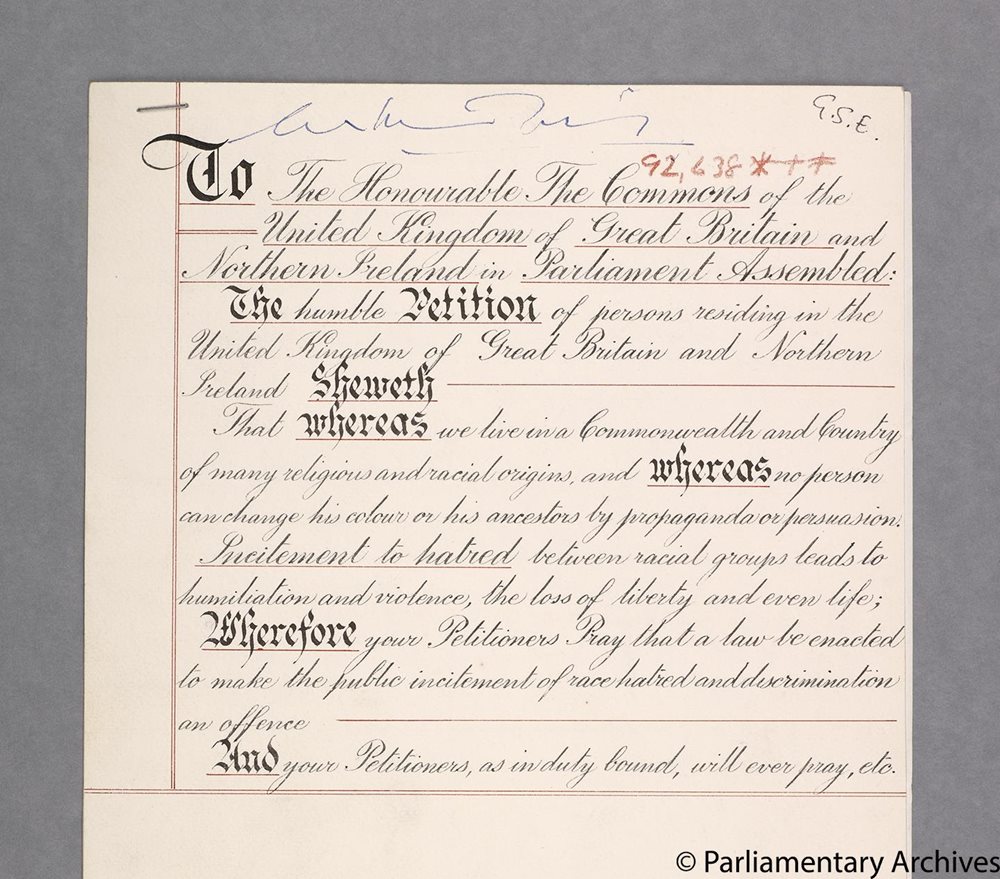 G.S.E.
92,638
To The Honourable The Commons of the
United Kingdom of Great Britain and
Northern Ireland in Parliament Assembled:
The humble Petition of persons residing in the
United Kingdom of Great Britain and Northern
Ireland Sheweth
That whereas we live in a Commonwealth and Country
of many religious and racial origins, and whereas no person
can change his colour or his ancestors by propaganda or persuasion.
Incitement to hatred between racial groups leads to
humiliation and violence, the loss of liberty and even life;
Wherefore your Petitioners Pray that a law be enacted
to make the public incitement of race hatred and discrimination
an offence
And your Petitioners, as in duty bound, will ever pray, etc.
© Parliamentary Archives